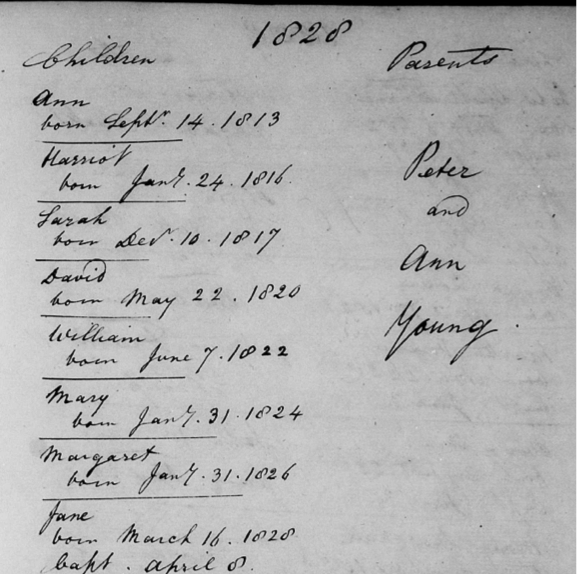 1828
Children
Parents
Ann
born Septr. 14. 1813
Harriot
born Jany. 24. 1816.
Sarah
born Decr. 10. 1817
David
born May 22. 1820
William
born June 7. 1822
Mary
born Jany. 31. 1824
Margaret
born Jany. 31. 1826
Jane
born March 16. 1828
bapt. April 8.
Peter
and
Ann
Young.